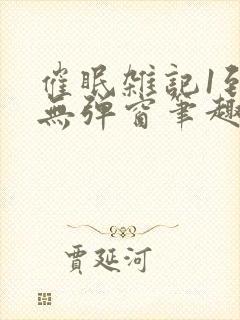 催眠雑記1至
無弹窗筆趣
賈延河